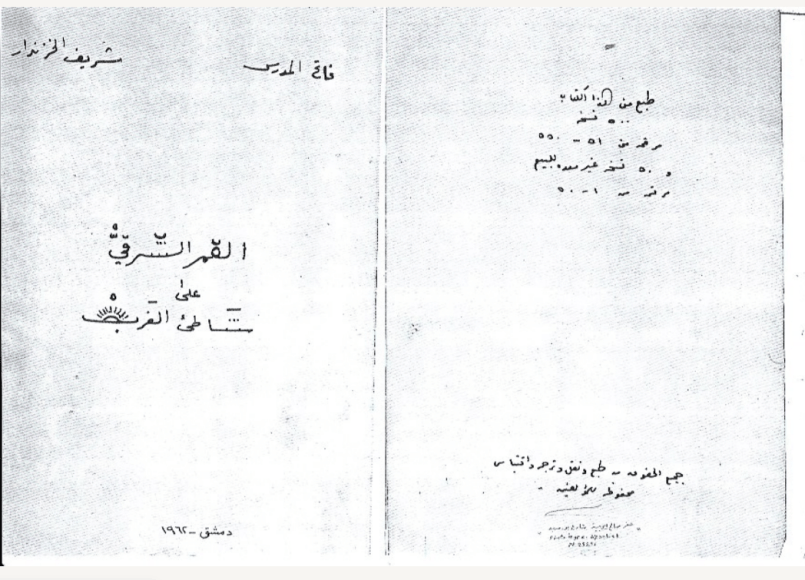 طبع من هذا الكتاب
٥٠٠ نسخة
مرقمة من ٥١ - ٥٥٠
و ٥٠ نسخة غير معدة للبيع
مرقمة من ١ - ٥٠
جميع الحقوق من طبع ونقل وترجمة واقتباس
محفوظة للمؤلفين
فاتح المدرس
شريف الخزندار
القمر الشرقيّ
على
شاطئ الغرب
دمشق - ١٩٦٢